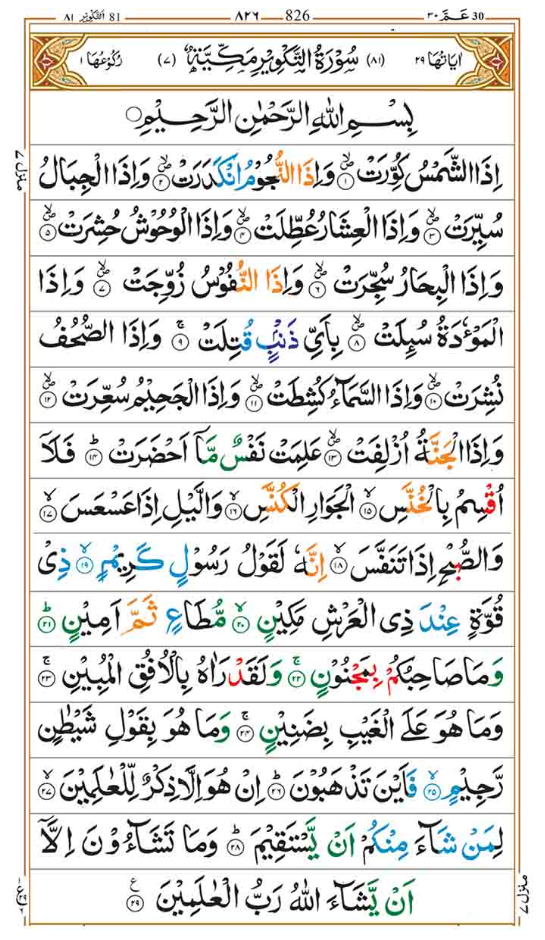 ٨١ التكوير 81 ٨٢٦ 826 عَمَّ ٣٠ 30
اٰيَاتُهَا ٢٩ (٨١) سُوْرَةُ التَّكْوِيْرِ مَكِّيَّةٌ (٧) رُكُوْعُهَا ١
بِسْمِ اللّٰهِ الرَّحْمٰنِ الرَّحِيْمِ
اِذَا الشَّمْسُ كُوِّرَتْ ۙ۝١ وَاِذَا النُّجُوْمُ انْكَدَرَتْ ۙ۝٢ وَاِذَا الْجِبَالُ
سُيِّرَتْ ۙ۝٣ وَاِذَا الْعِشَارُ عُطِّلَتْ ۙ۝٤ وَاِذَا الْوُحُوْشُ حُشِرَتْ ۙ۝٥
وَاِذَا الْبِحَارُ سُجِّرَتْ ۙ۝٦ وَاِذَا النُّفُوْسُ زُوِّجَتْ ۙ۝٧ وَاِذَا
الْمَوْءٗدَةُ سُىِٕلَتْ ۙ۝٨ بِاَىِّ ذَنْۢبٍ قُتِلَتْ ۚ۝٩ وَاِذَا الصُّحُفُ
نُشِرَتْ ۙ۝١٠ وَاِذَا السَّمَآءُ كُشِطَتْ ۙ۝١١ وَاِذَا الْجَحِيْمُ سُعِّرَتْ ۙ۝١٢
وَاِذَا الْجَنَّةُ اُزْلِفَتْ ۙ۝١٣ عَلِمَتْ نَفْسٌ مَّاۤ اَحْضَرَتْ ؕ۝١٤ فَلَاۤ
اُقْسِمُ بِالْخُنَّسِ ۙ۝١٥ الْجَوَارِ الْكُنَّسِ ۙ۝١٦ وَالَّيْلِ اِذَا عَسْعَسَ ۙ۝١٧
وَالصُّبْحِ اِذَا تَنَفَّسَ ۙ۝١٨ اِنَّهٗ لَقَوْلُ رَسُوْلٍ كَرِيْمٍ ۙ۝١٩ ذِىْ
قُوَّةٍ عِنْدَ ذِى الْعَرْشِ مَكِيْنٍ ۙ۝٢٠ مُّطَاعٍ ثَمَّ اَمِيْنٍ ؕ۝٢١
وَمَا صَاحِبُكُمْ بِمَجْنُوْنٍ ۚ۝٢٢ وَلَقَدْ رَاٰهُ بِالْاُفُقِ الْمُبِيْنِ ۚ۝٢٣
وَمَا هُوَ عَلَى الْغَيْبِ بِضَنِيْنٍ ۚ۝٢٤ وَمَا هُوَ بِقَوْلِ شَيْطٰنٍ
رَّجِيْمٍ ۙ۝٢٥ فَاَيْنَ تَذْهَبُوْنَ ؕ۝٢٦ اِنْ هُوَ اِلَّا ذِكْرٌ لِّلْعٰلَمِيْنَ ۙ۝٢٧
لِمَنْ شَآءَ مِنْكُمْ اَنْ يَّسْتَقِيْمَ ؕ۝٢٨ وَمَا تَشَآءُوْنَ اِلَّاۤ
اَنْ يَّشَآءَ اللّٰهُ رَبُّ الْعٰلَمِيْنَ ۝٢٩
منزل ٧
منزل ٧